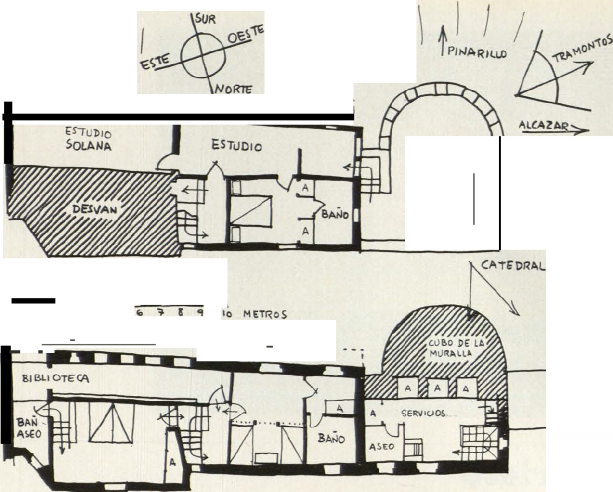 SUR
OESTE
ESTE
NORTE
PINARILLO
TRAMONTOS
ALCAZAR
ESTUDIO
SOLANA
ESTUDIO
DESVAN
A
BAÑO
A
CATEDRAL
6 7 8 9 10 METROS
CUBO DE LA
MURALLA
BIBLIOTECA
A A A
A
A
SERVICIOS
BAÑ
ASEO
BAÑO
ASEO
A